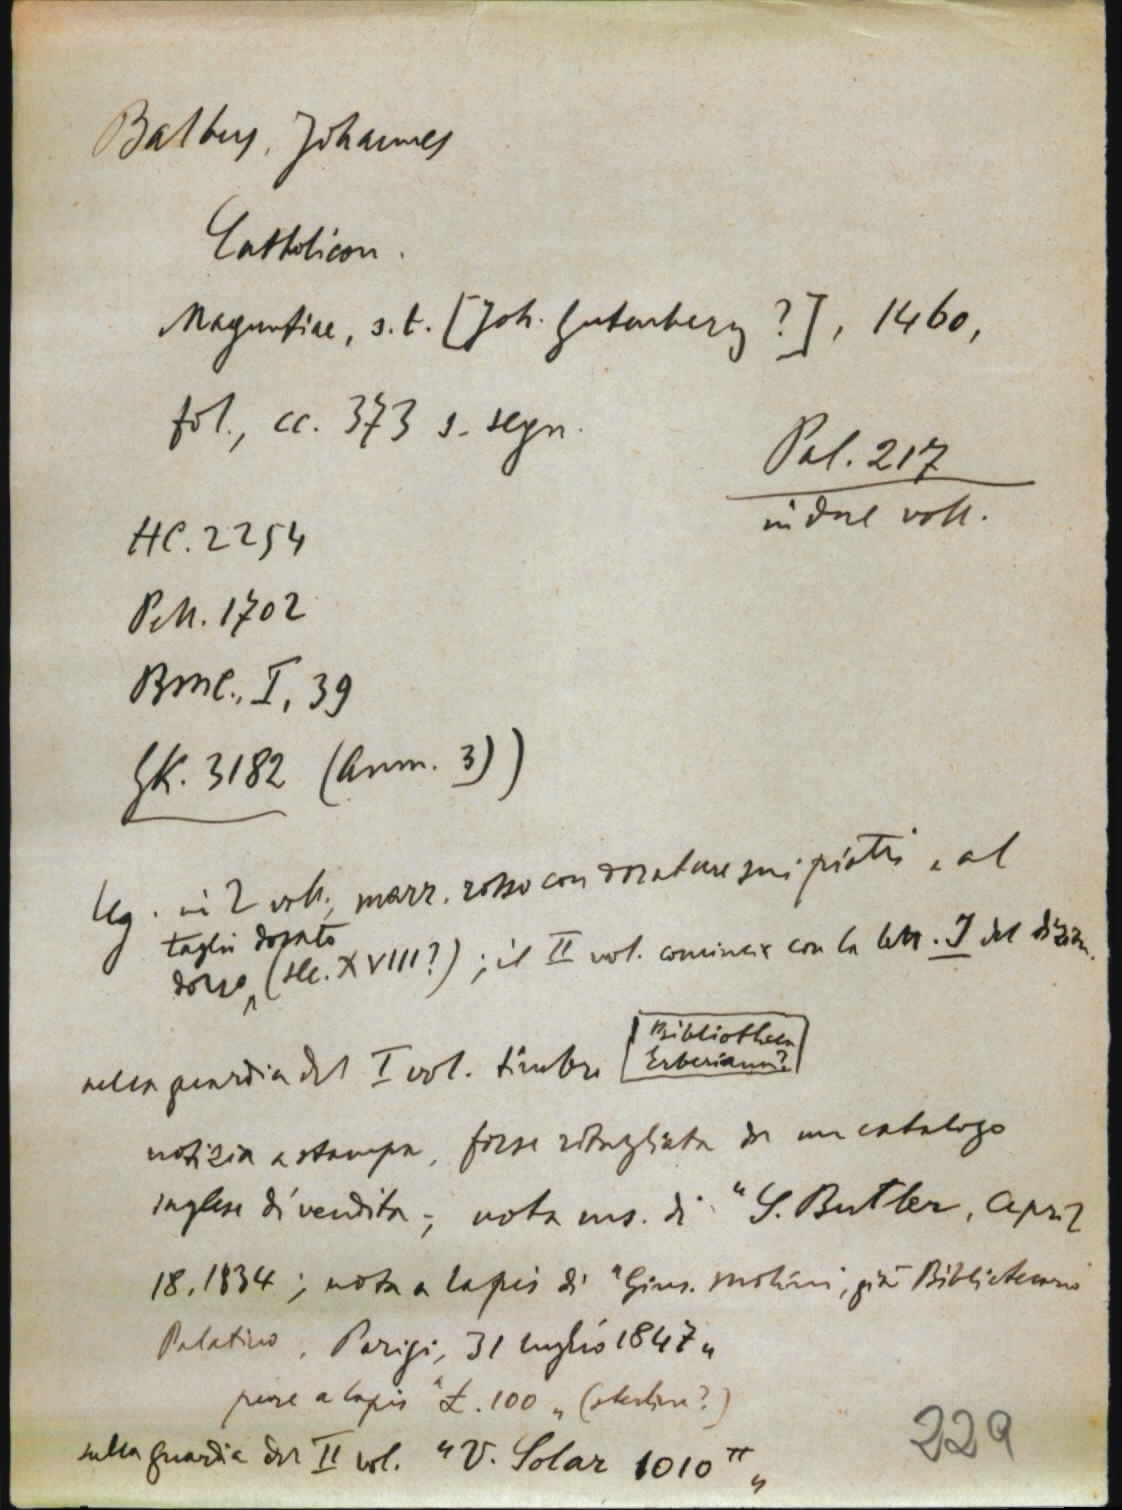 Balbus, Johannes
Catholicon.
Maguntiae, s.t. [Joh. Gutenberg ?], 1460,
fol., cc. 373 s. segn.
Pal. 217
in due voll.
HC. 2254
Pell. 1702
BMC., I, 39
GK. 3182 (Anm. 3))
leg. in 2 voll., marr. rosso con dorature sui piatti e al
taglio dorato
dorso (sec. XVIII?); il II vol. comincia con la lett. I del dizion.
nella guardia del I vol. timbro
Bibliotheca
Erberiana?
notizia a stampa, forse ritagliata da un catalogo
inglese di vendita; nota ms. di "S. Butler, April
18. 1834; nota a lapis di "Gius. Molini, già Bibliotecario
Palatino, Parigi, 31 luglio 1847"
pure a lapis "£. 100" (sterline?)
sulla guardia del II vol. "V. Solar 1010 II"
229